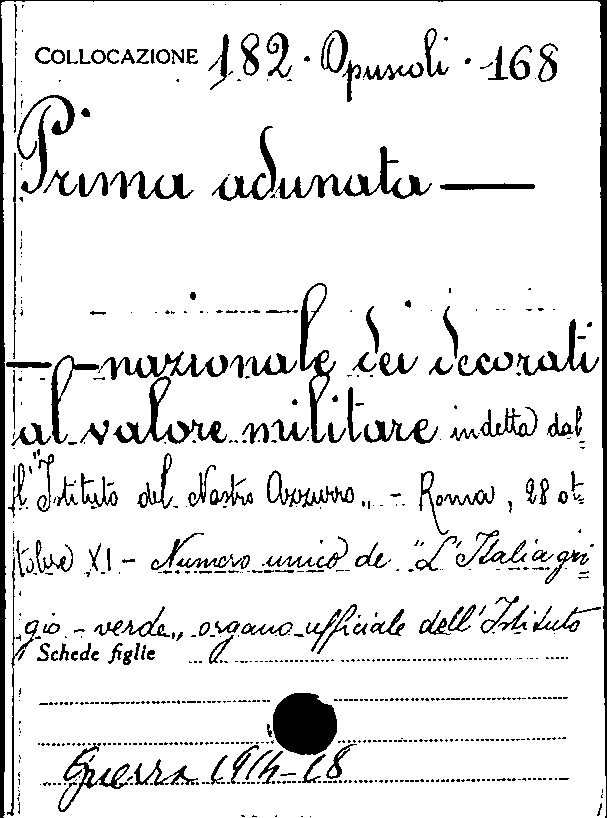 COLLOCAZIONE 182 · Opuscoli · 168
Prima adunata —
— nazionale dei decorati
al valore militare indetta dal=
l'"Istituto del Nastro Azzurro„ - Roma, 28 ot=
tobre XI - Numero unico de "L'Italia gri=
gio - verde„ organo ufficiale dell'Istituto
Schede figlie
Guerra 1914-18